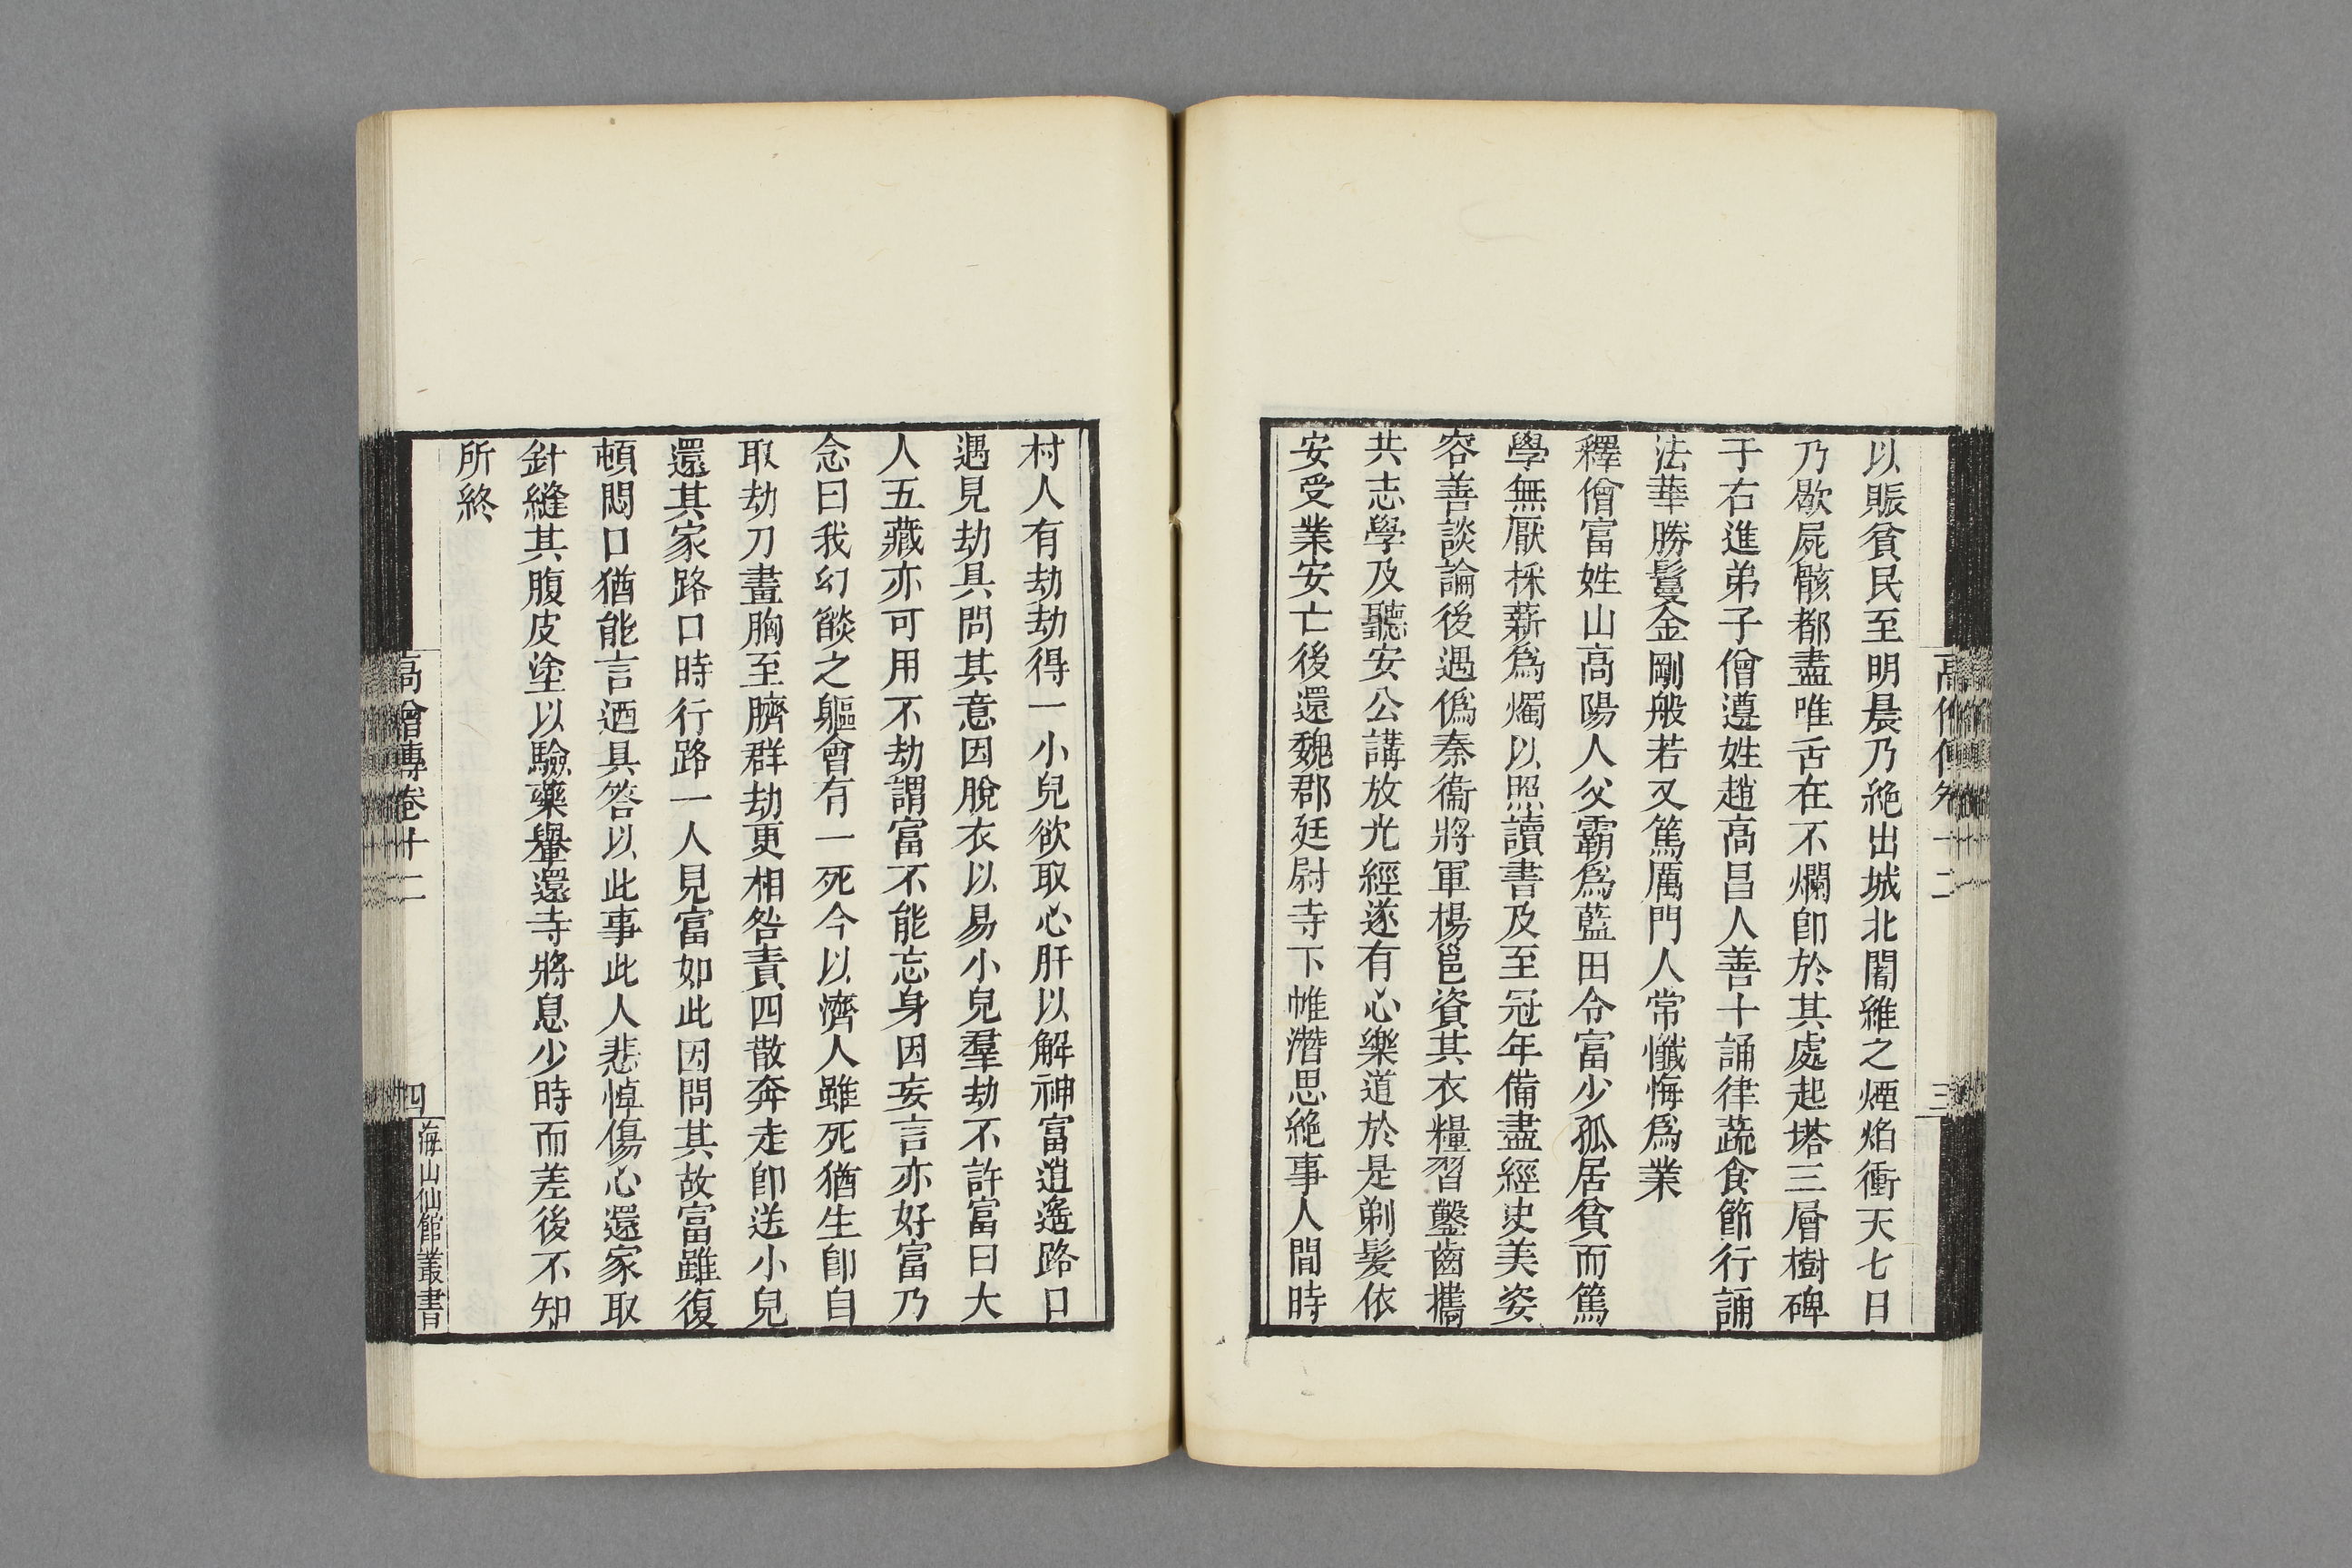 以賑貧民至明晨乃絶出城北闍維之煙焰衝天七日
乃歇屍骸都盡唯舌在不爛卽於其處起塔三層樹碑
于右進弟子僧遵姓趙高昌人善十誦律蔬食節行誦
法華勝鬘金剛般若又篤厲門人常懺悔爲業
釋僧富姓山高陽人父霸爲藍田令富少孤居貧而篤
學無厭採薪爲燭以照讀書及至冠年備盡經史美姿
容善談論後遇僞秦衞將軍楊邕資其衣糧習鑿齒攜
共志學及聽安公講放光經遂有心樂道於是剃髮依
安受業安亡後還魏郡廷尉寺下帷潛思絶事人間時
村人有劫劫得一小兒欲取心肝以解神富逍遙路口
遇見劫具問其意因脫衣以易小兒羣劫不許富曰大
人五藏亦可用不劫謂富不能忘身因妄言亦好富乃
念曰我幻燄之軀會有一死今以濟人雖死猶生卽自
取劫刀畫胸至臍群劫更相咎責四散奔走卽送小兒
還其家路口時行路一人見富如此因問其故富雖復
頓悶口猶能言迺具答以此事此人悲悼傷心還家取
針縫其腹皮塗以驗藥轝還寺將息少時而差後不知
所終
高僧傳卷十二
四
海山仙館叢書